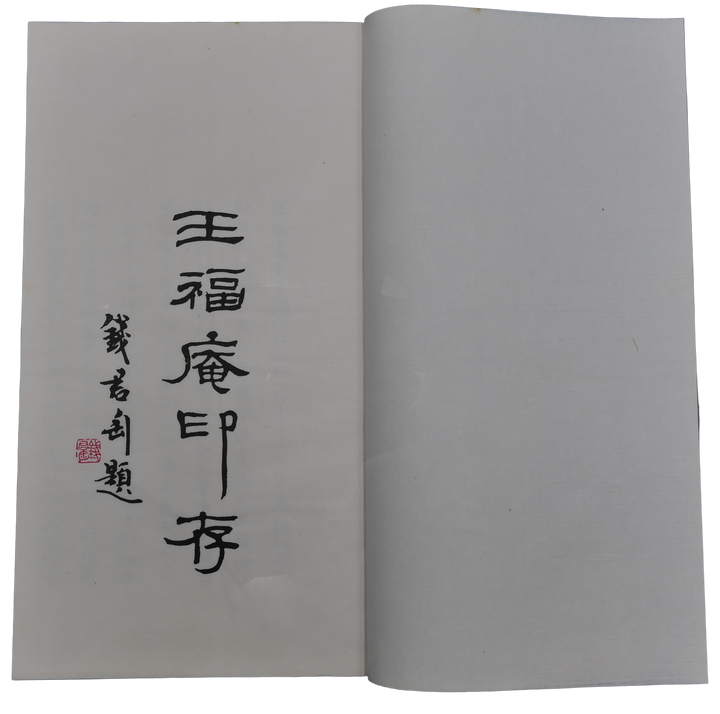 王福庵印存
錢君匋題